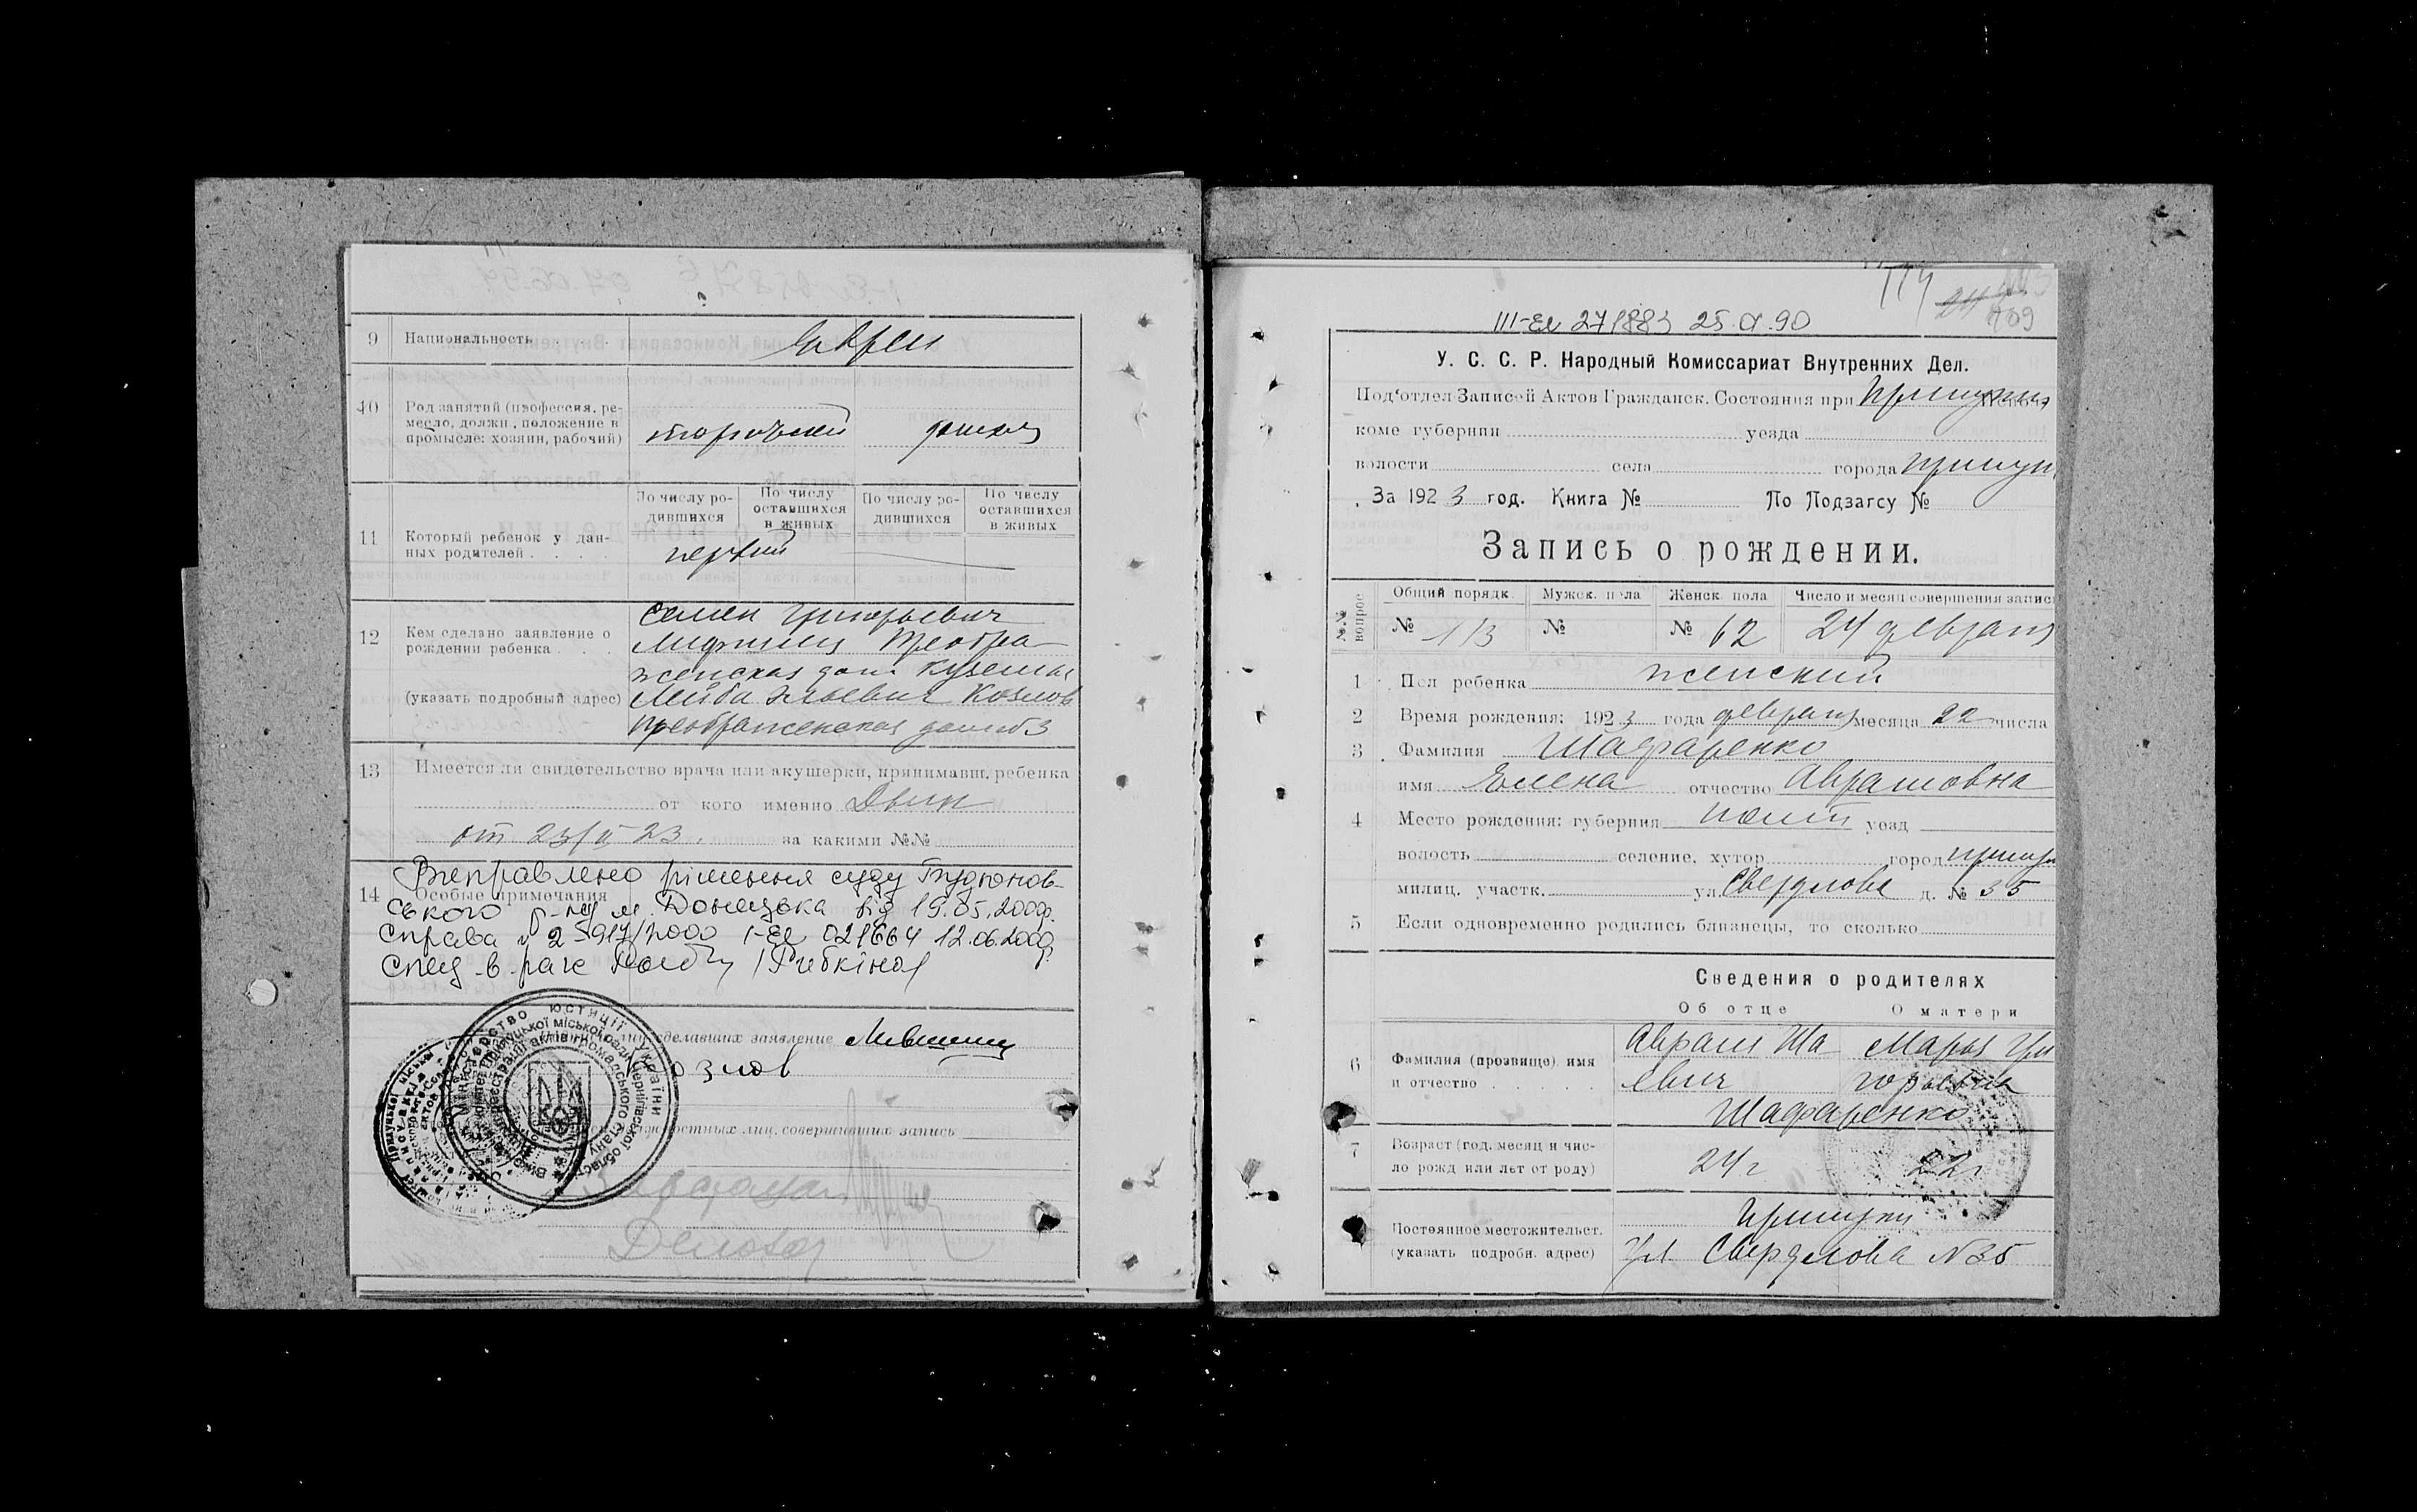 9 Национальность евреи
10 Род занятий (профессия, ре-
месло, должн., положение в
промысле: хозяин, рабочий) торговец домхоз
11 Который ребенок у дан-
ных родителей
По числу ро-
дившихся
По числу
оставшихся
в живых
По числу ро-
дившихся
По числу
оставшихся
в живых
первый
12 Кем сделано заявление о
рождении ребенка
(указать подробный адрес)
Семен Григорьевич
Лифшиц Преобра-
женская дом
Лейба Эльевич Козлов
Преображенская дом № 3
13 Имеется ли свидетельство врача или акушерки, принимавш. ребенка
от кого именно Двин
от 23/II-23. за какими №№
14 Особые примечания
Виправлено рішення суду
ського р-ну м. Донецька від 19.05.2000р.
Справа № 2-5917/2000 I-Ел 021664 12.06.2000р.
Спец в-рагс
делавших заявление Лившиц
Козлов
должностных лиц, совершивших запись
Зав
Деловод
Міністерство юстиції України
III-Ел 271883 25.01.90
774
247
109
У. С. С. Р. Народный Комиссариат Внутренних Дел.
Под'отдел Записей Актов Гражданск. Состояния при Прилукск
коме губернии уезда
волости села города Прилуки
За 1923 год. Книга № По Подзагсу №
Запись о рождении.
№№ вопрос
Общий порядк. Мужск. пола Женск. пола Число и месяц совершения записи
№ 113 № № 62 24 февраля
1 Пол ребенка женский
2 Время рождения: 1923 года февраля месяца 22 числа
3 Фамилия Шафаренко
имя Елена отчество Абрамовна
4 Место рождения: губерния Полт уезд
волость селение, хутор город Прилуки
милиц. участк. ул. Свердлова д. № 35
5 Если одновременно родились близнецы, то сколько
Сведения о родителях
Об отце О матери
6 Фамилия (прозвище) имя
и отчество
Абрам Ша- Марья Гри-
евич горьевна
Шафаренко
7 Возраст (год. месяц и чис-
ло рожд или лет от роду) 24 г 22 г
Постоянное местожительст.
(указать подробн. адрес)
Прилуки
Ул Свердлова № 35